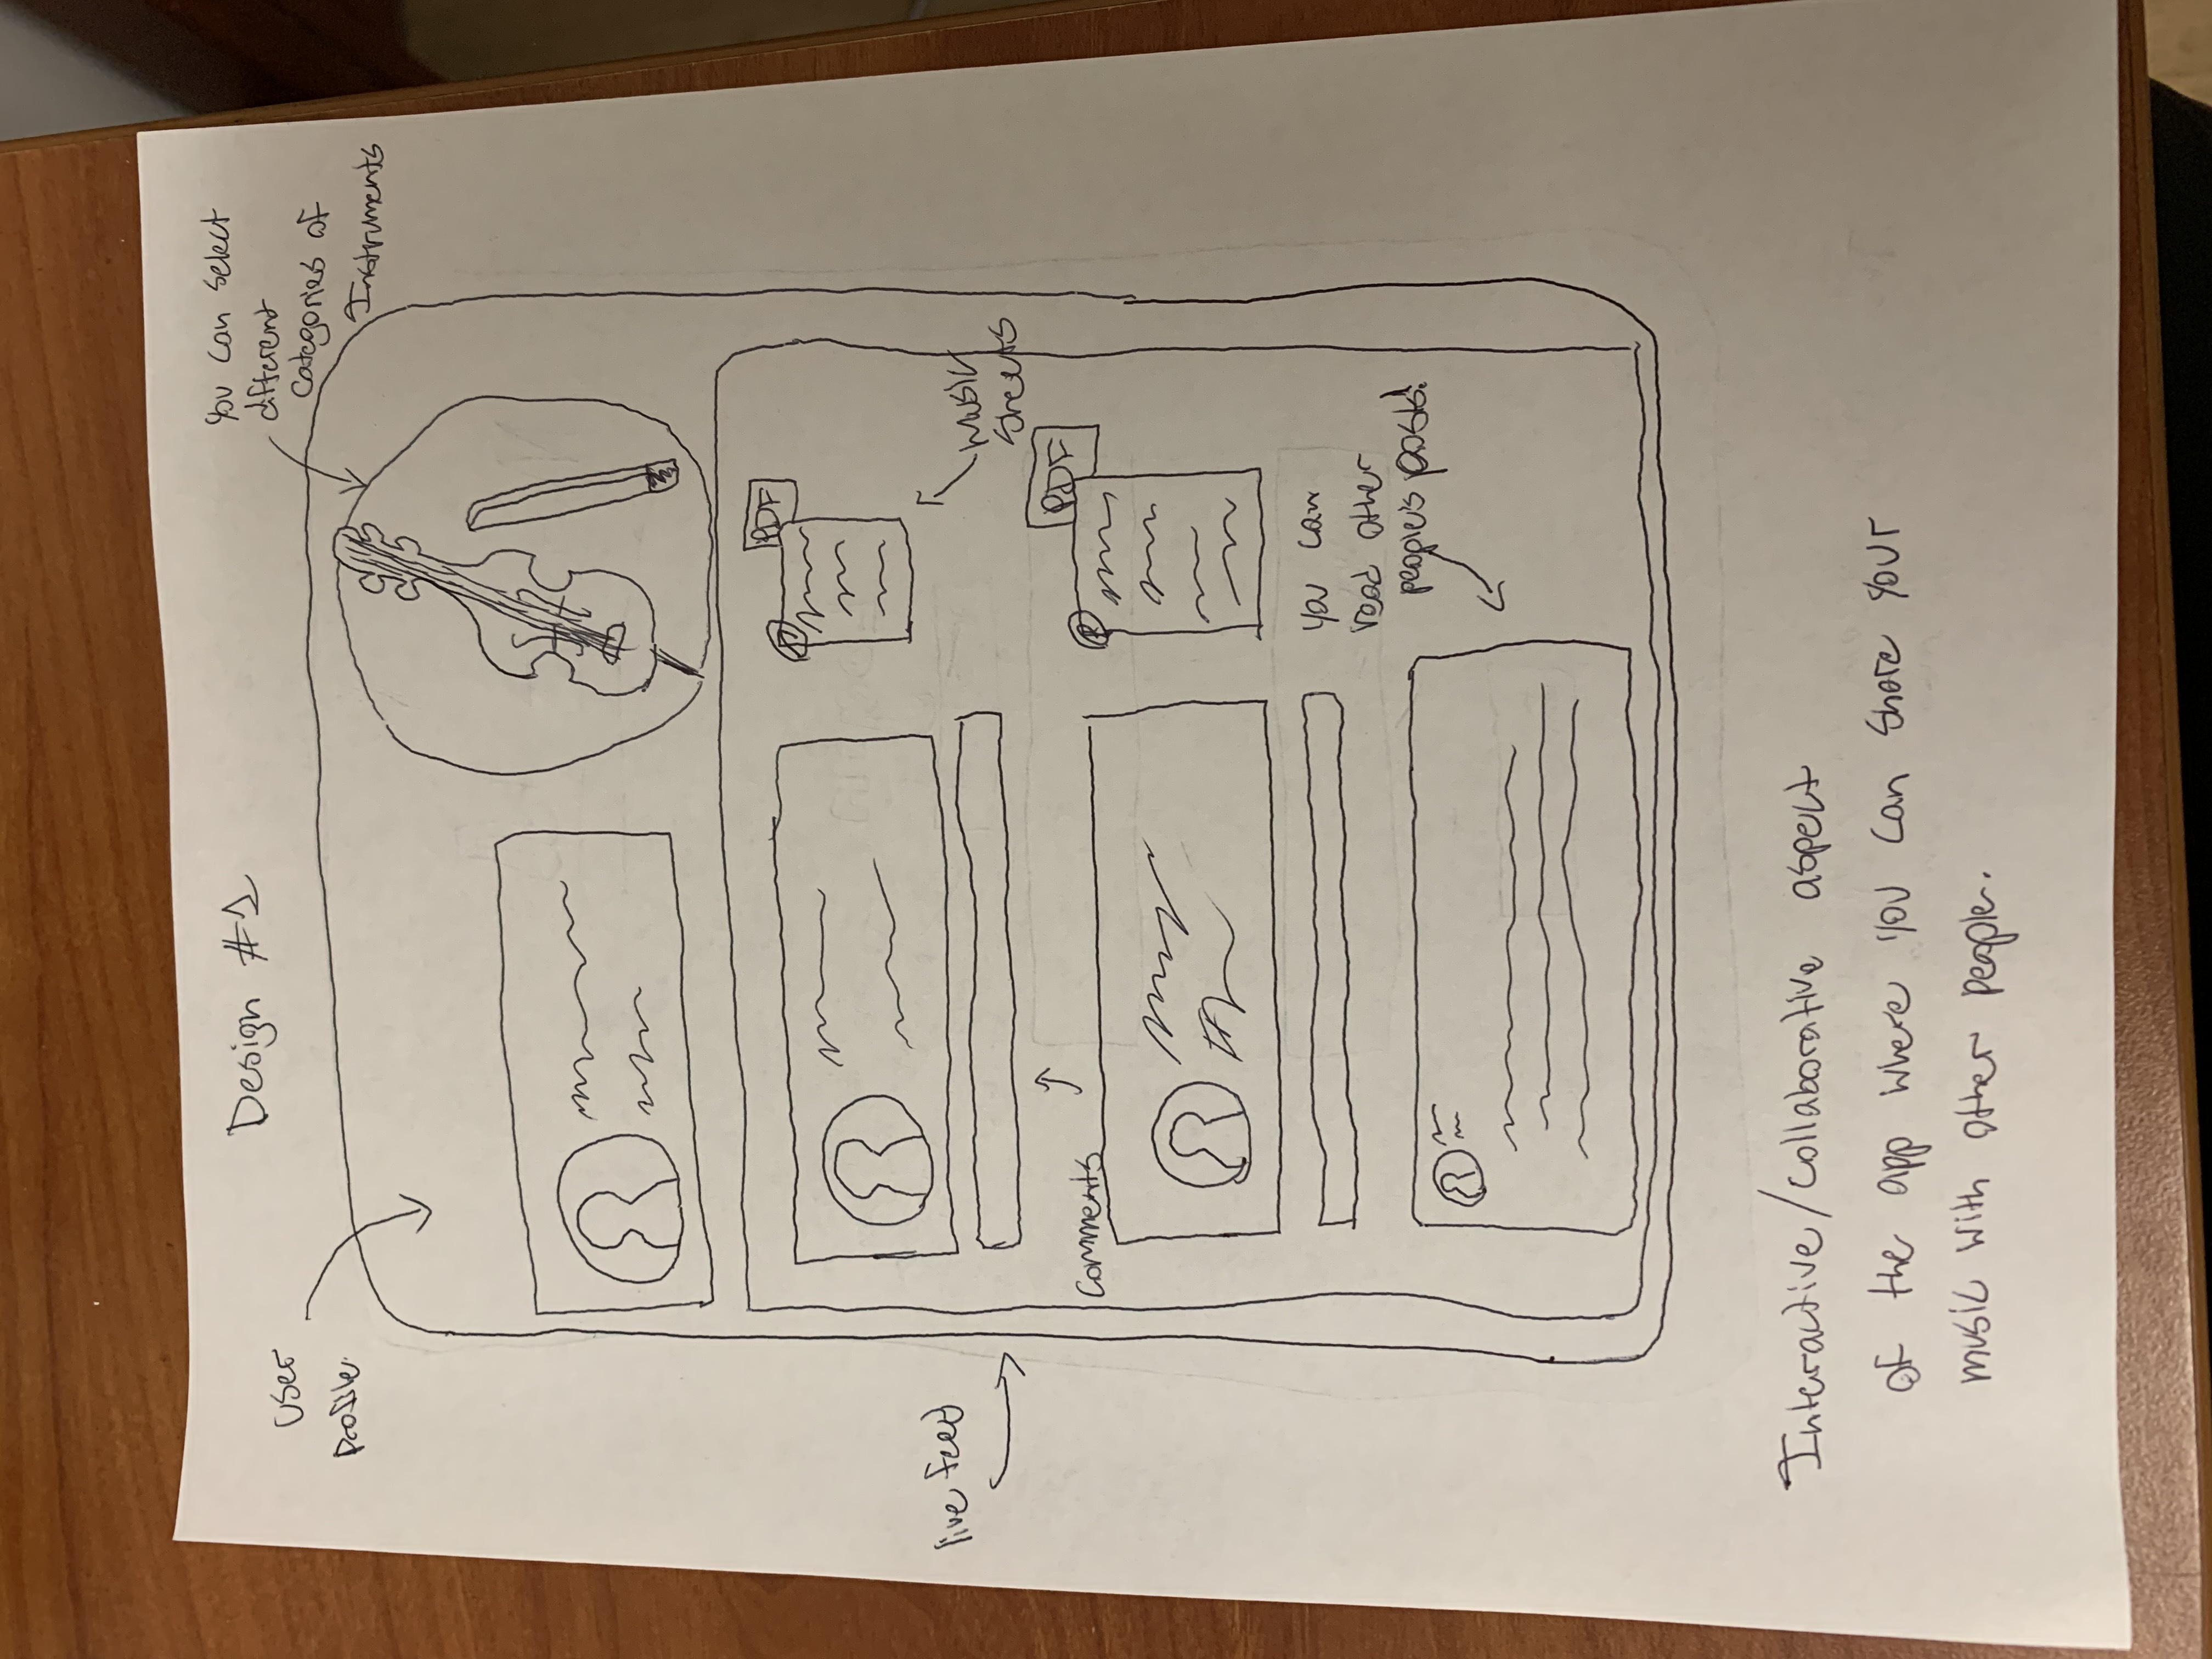 Design #1
User
Profile
You can select
different
categories of
Instruments
PDF
live feed
Music
Sheets
Comments
PDF
You can
read other
people's posts!
Interactive/collaborative aspect
of the app where you can share your
music with other people.